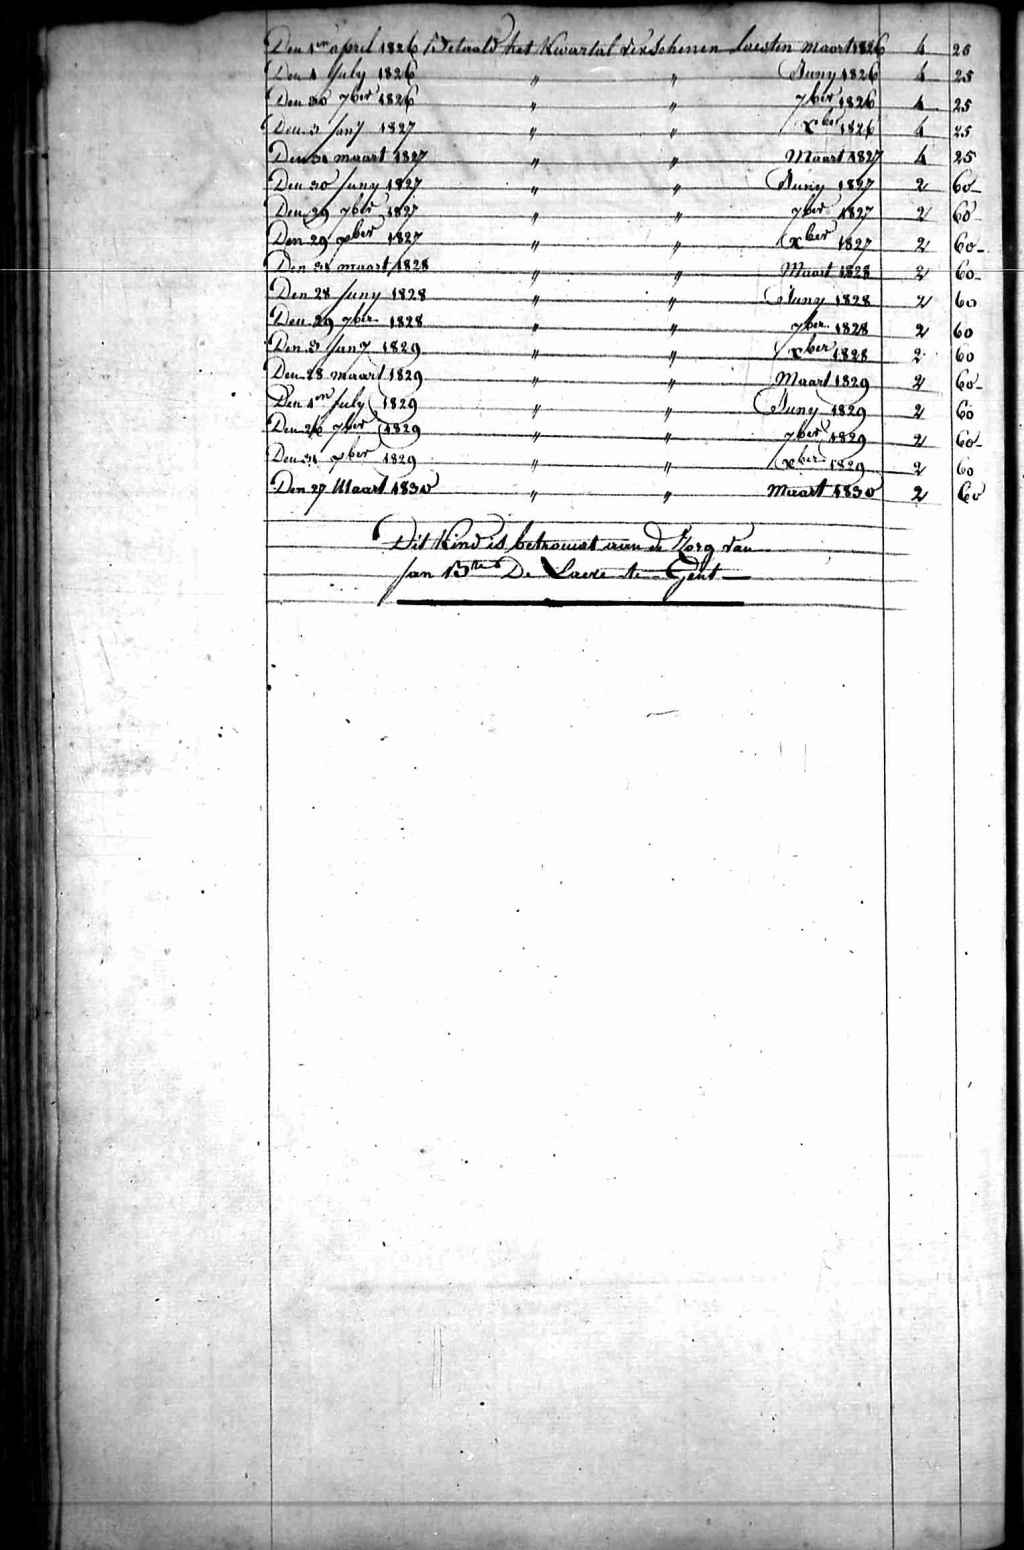 Den 1en april 1826 Betaald het Kwartal verschenen laesten maart 1826 4 25
Den 1 July 1826 " " Juny 1826 4 25
Den 30 7ber 1826 " " 7ber 1826 4 25
Den 3 Jany 1827 " " xber 1826 4 25
Den 31 maart 1827 " " Maart 1827 4 25
Den 30 Juny 1827 " " Juny 1827 2 60
Den 29 7ber 1827 " " 7ber 1827 2 60
Den 29 xber 1827 " " xber 1827 2 60
Den 31 maart 1828 " " Maart 1828 2 60
Den 28 Juny 1828 " " Juny 1828 2 60
Den 29 7ber 1828 " " 7ber 1828 2 60
Den 3 Jany 1829 " " xber 1828 2 60
Den 28 maart 1829 " " Maart 1829 2 60
Den 1en July 1829 " " Juny 1829 2 60
Den 26 7ber 1829 " " 7ber 1829 2 60
Den 31 xber 1829 " " xber 1829 2 60
Den 27 Maart 1830 " " Maart 1830 2 60
Dit Kind is betrouwt aen de Zorg van
Jan Bte De te Gent